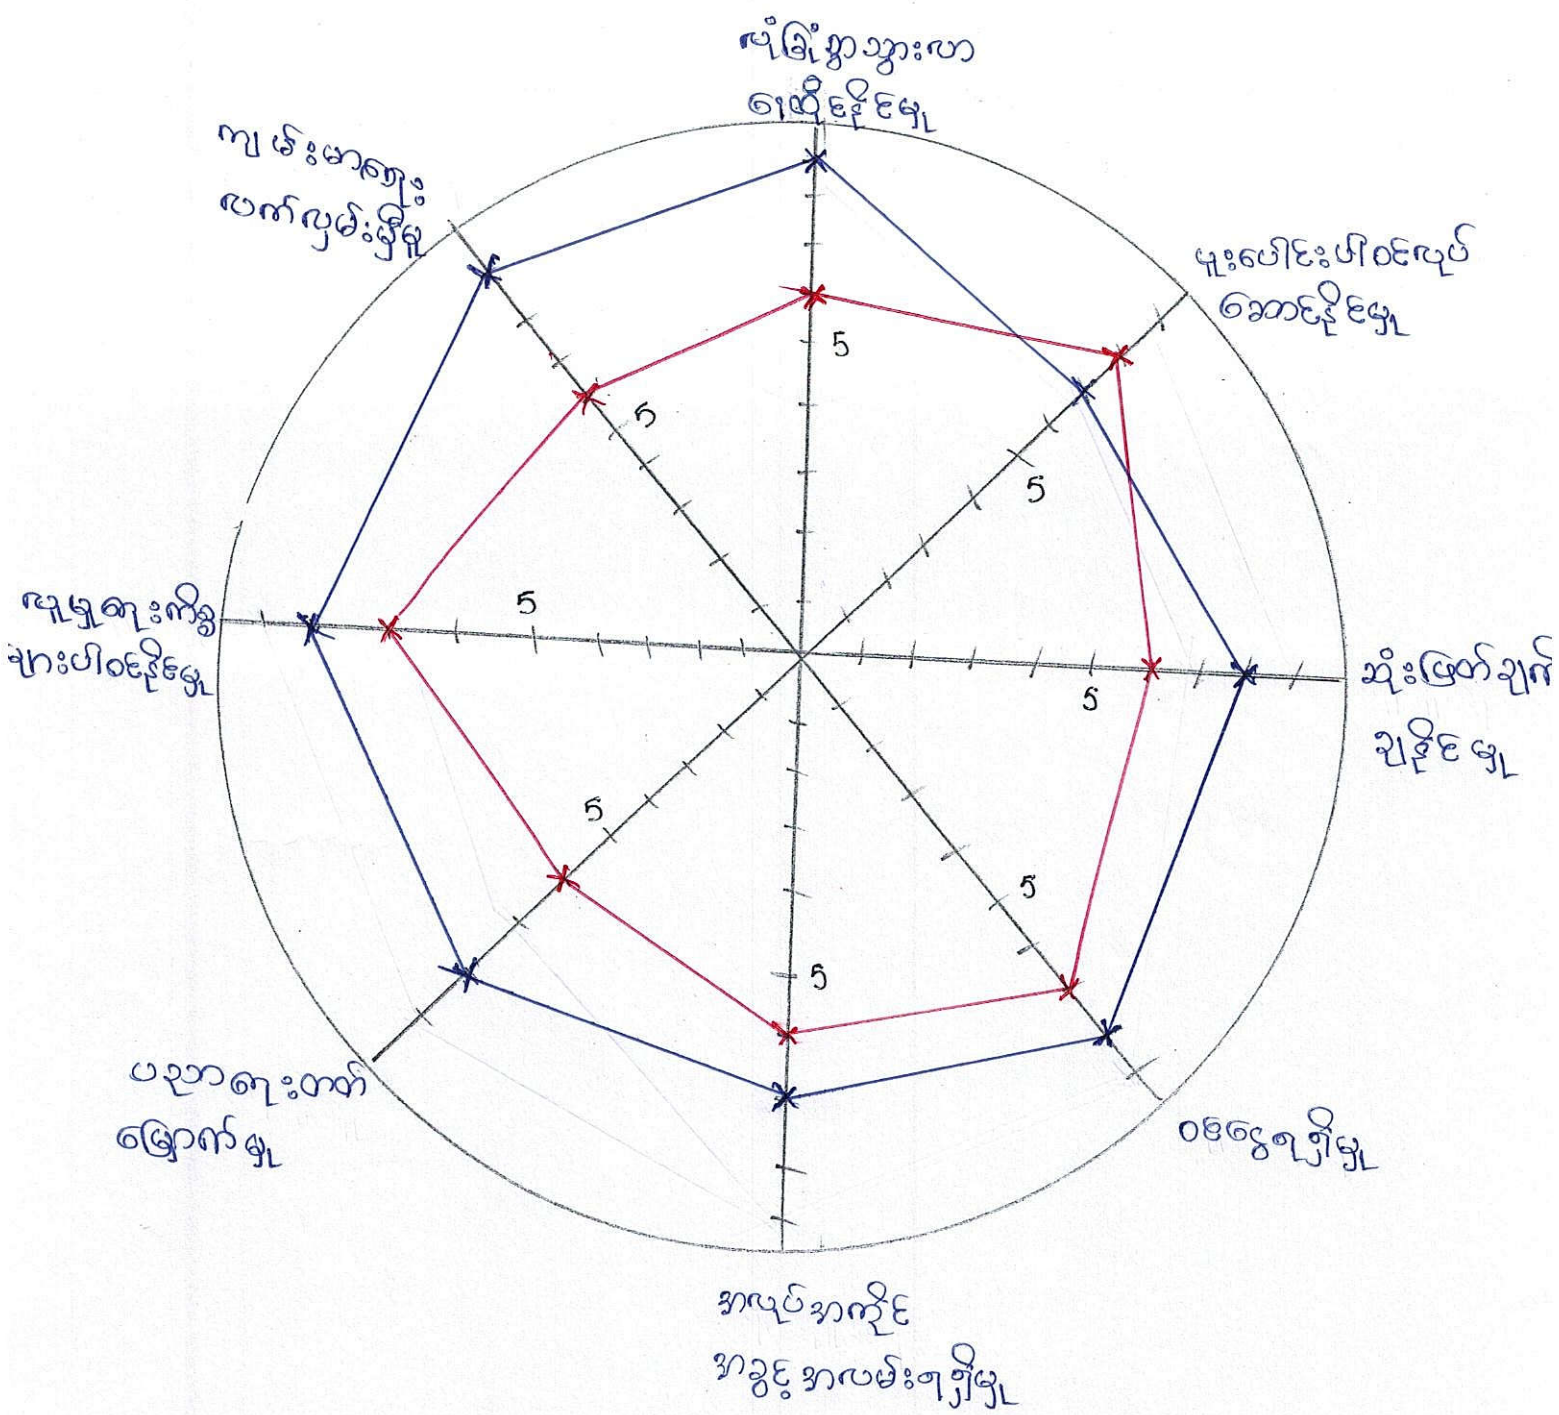 လုံခြုံစွာသွားလာ
နေထိုင်နိုင်မှု
ပူးပေါင်းပါဝင်လုပ်
ဆောင်နိုင်မှု
ဆုံးဖြတ်ချက်
ချနိုင်မှု
ဝင်ငွေရရှိမှု
အလုပ်အကိုင်
အခွင့်အလမ်းရရှိမှု
ပညာရေးတတ်
မြောက်မှု
လူမှုရေးကိစ္စ
များပါဝင်နိုင်မှု
ကျမ်းမာရေး
လက်လှမ်းမှီမှု
5
5
5
5
5
5
5
5